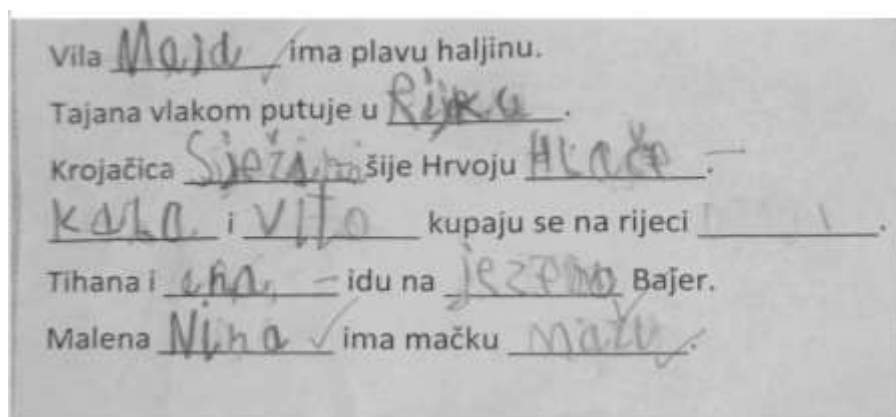 Vila Maja ima plavu haljinu.
Tajana vlakom putuje u Rijku.
Krojačica šije Hrvoju Hlače.
Kata i Vito kupaju se na rijeci.
Tihana i ena idu na jezero Bajer.
Malena Nina ima mačku Mazu.